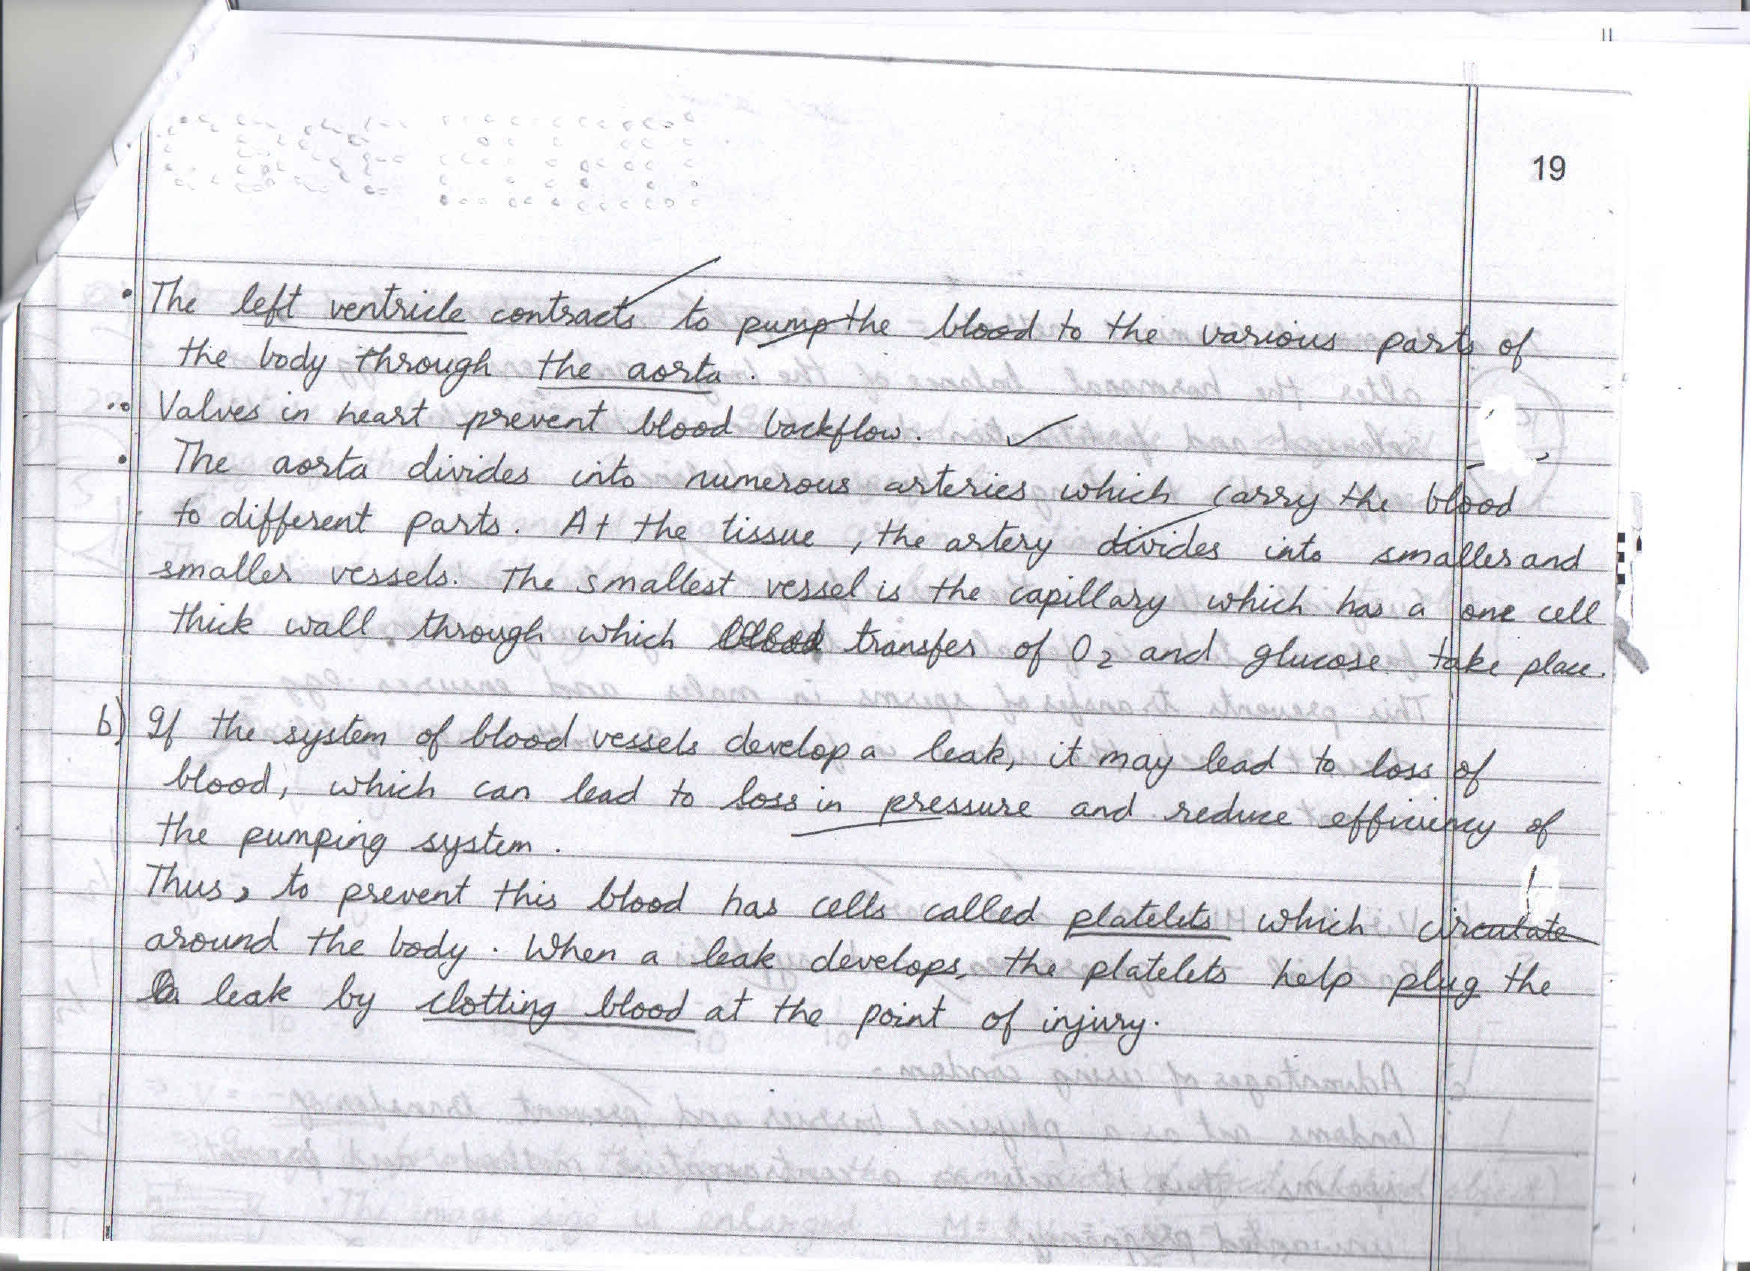 19
• The left ventricle contracts to pump the blood to the various parts of
the body through the aorta.
• Valves in heart prevent blood backflow.
• The aorta divides into numerous arteries which carry the blood
to different parts. At the tissue, the artery divides into smaller and
smaller vessels. The smallest vessel is the capillary which has a one cell
thick wall through which blood transfer of O2 and glucose take place.
b) If the system of blood vessels develop a leak, it may lead to loss of
blood, which can lead to loss in pressure and reduce efficiency of
the pumping system.
Thus, to prevent this blood has cells called platelets which circulate
around the body. When a leak develops, the platelets help plug the
leak by clotting blood at the point of injury.